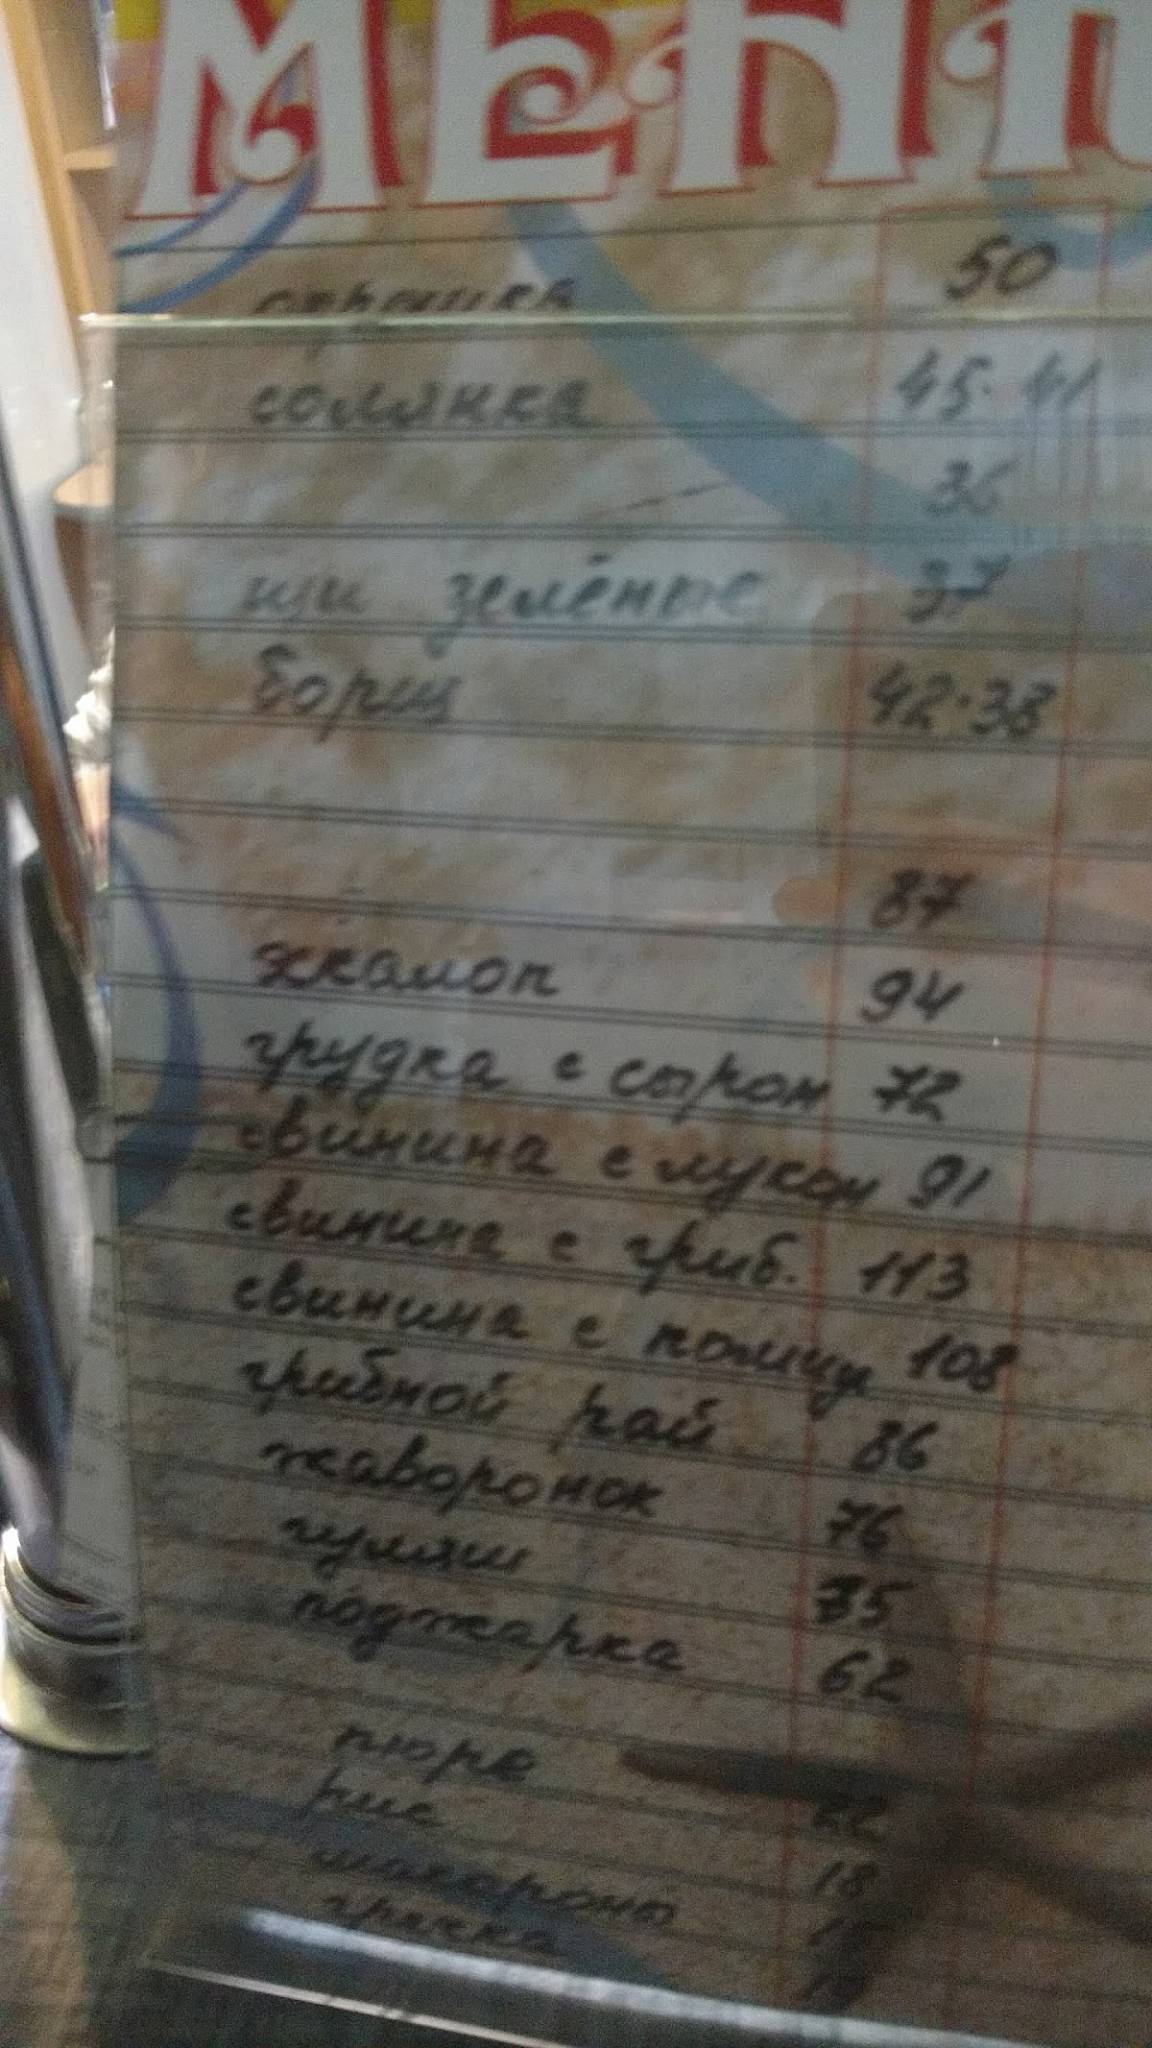 МЕНЮ
окрошка 50
солянка 45. 41
36
щи зелёные 37
борщ 42.38
87
эскалоп 94
грудка с сыром 72
свинина с луком 91
свинина с гриб. 113
свинина с помид 108
грибной рай 86
жаворонок 76
гуляш
поджарка 62
пюре 22
рис 18
макароны
гречка